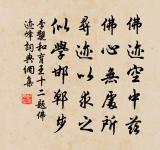 佛迹空中茲
佛心無處所
尋迹以求之
似學邯鄲步
李覯和育王十二題佛
迹峰詞典網集